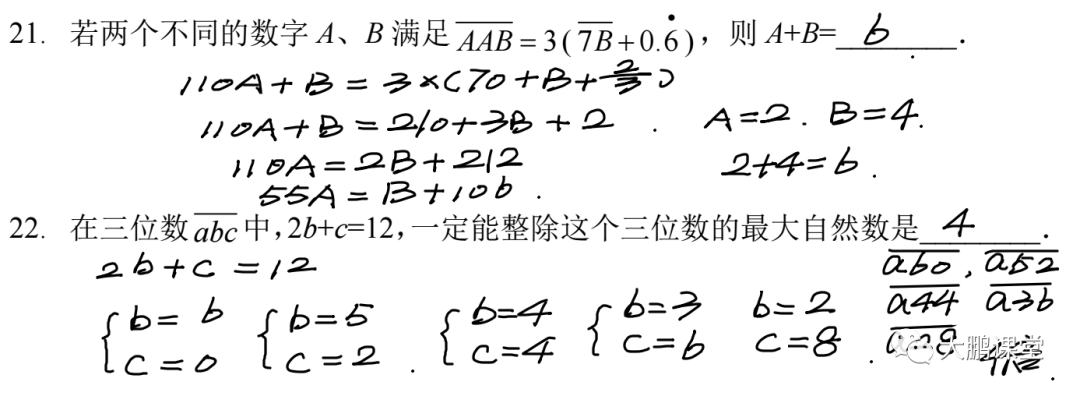 21. 若两个不同的数字 A、B 满足 $\overline{AAB}=3(\overline{7B}+0.\dot{6})$，则 A+B= 6 .
110A + B = 3×(70+B+$\frac{2}{3}$)
110A + B = 210+3B + 2 . A=2. B=4.
110A = 2B + 212 2+4=6.
55A = B+106 .
22. 在三位数 $\overline{abc}$ 中,2b+c=12,一定能整除这个三位数的最大自然数是 4 .
2b+c =12 $\overline{a60}$ , $\overline{a52}$
{b=6 c=0 {b=5 c=2 . {b=4 c=4 {b=3 c=6 b=2 c=8 . $\overline{a44}$ $\overline{a36}$
大鹏课堂